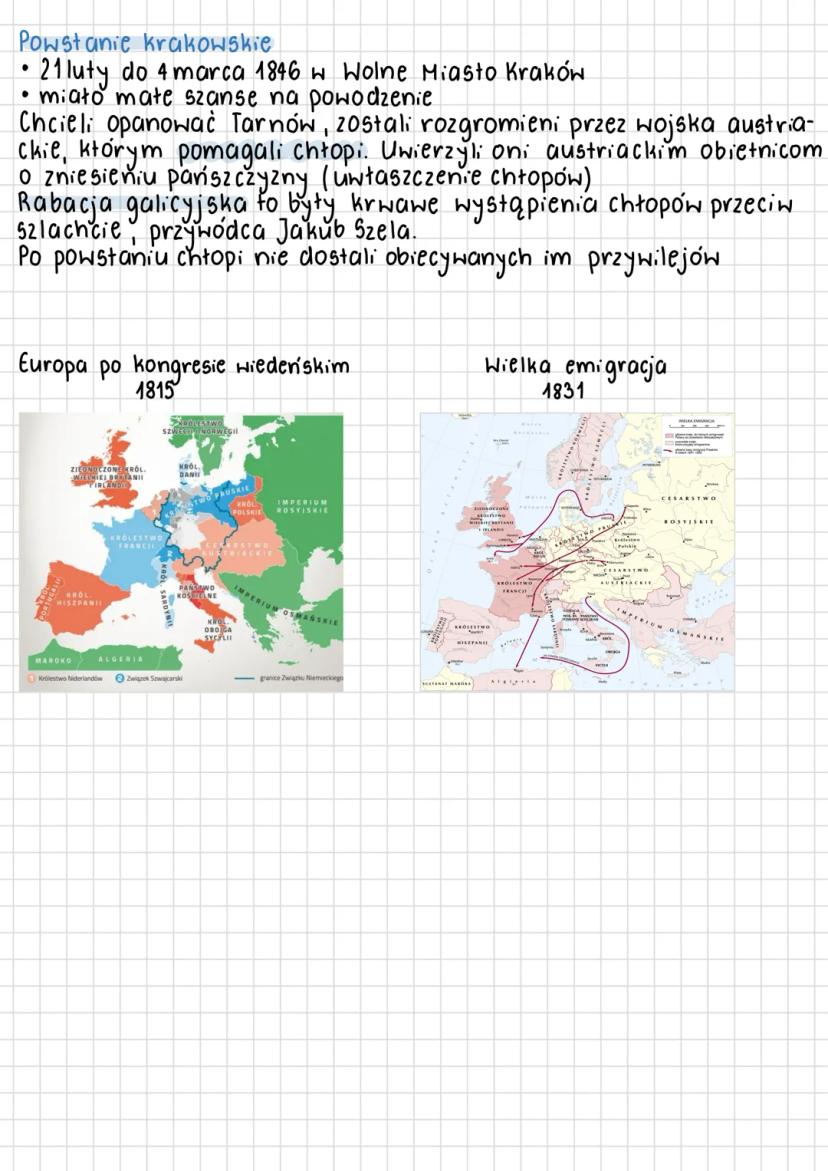 Powstanie krakowskie
• 21 luty do 4 marca 1846 w Wolne Miasto Kraków
• miało małe szanse na powodzenie
Chcieli opanować Tarnów, zostali rozgromieni przez wojska austria-
ckie, którym pomagali chłopi. Uwierzyli oni austriackim obietnicom
o zniesieniu pańszczyzny (uwłaszczenie chłopów)
Rabacja galicyjska to były krwawe wystąpienia chłopów przeciw
szlachcie, przywódca Jakub Szela.
Po powstaniu chłopi nie dostali obiecywanych im przywilejów
Europa po kongresie wiedeńskim
1815
KRÓLESTWO
SZWECJI I NORWEGII
ZJEDNOCZONE KRÓL.
WIELKIEJ BRYTANII
I IRLANDII
KRÓL.
DANII
KRÓLESTWO PRUSKIE
KRÓL.
POLSKIE
IMPERIUM
ROSYJSKIE
KRÓLESTWO
FRANCJI
CESARSTWO
AUSTRIACKIE
KRÓL. PORTUGALII
KRÓL.
HISZPANII
KRÓL. SARDYNII
PAŃSTWO
KOŚCIELNE
KRÓL.
OBOJGA
SYCYLII
IMPERIUM OSMAŃSKIE
MAROKO
ALGERIA
1 Królestwo Niderlandów
2 Związek Szwajcarski
granice Związku Niemieckiego
Wielka emigracja
1831
WIELKA EMIGRACJA
ZJEDNOCZONE
KRÓLESTWO
WIELKIEJ BRYTANII
I IRLANDII
CESARSTWO
ROSYJSKIE
KRÓLESTWO PRUSKIE
Królestwo
Polskie
KRÓLESTWO
FRANCJI
CESARSTWO
AUSTRIACKIE
KRÓLESTWO
HISZPANII
IMPERIUM OSMAŃSKIE
SUŁTANAT MAROKA
Algieria